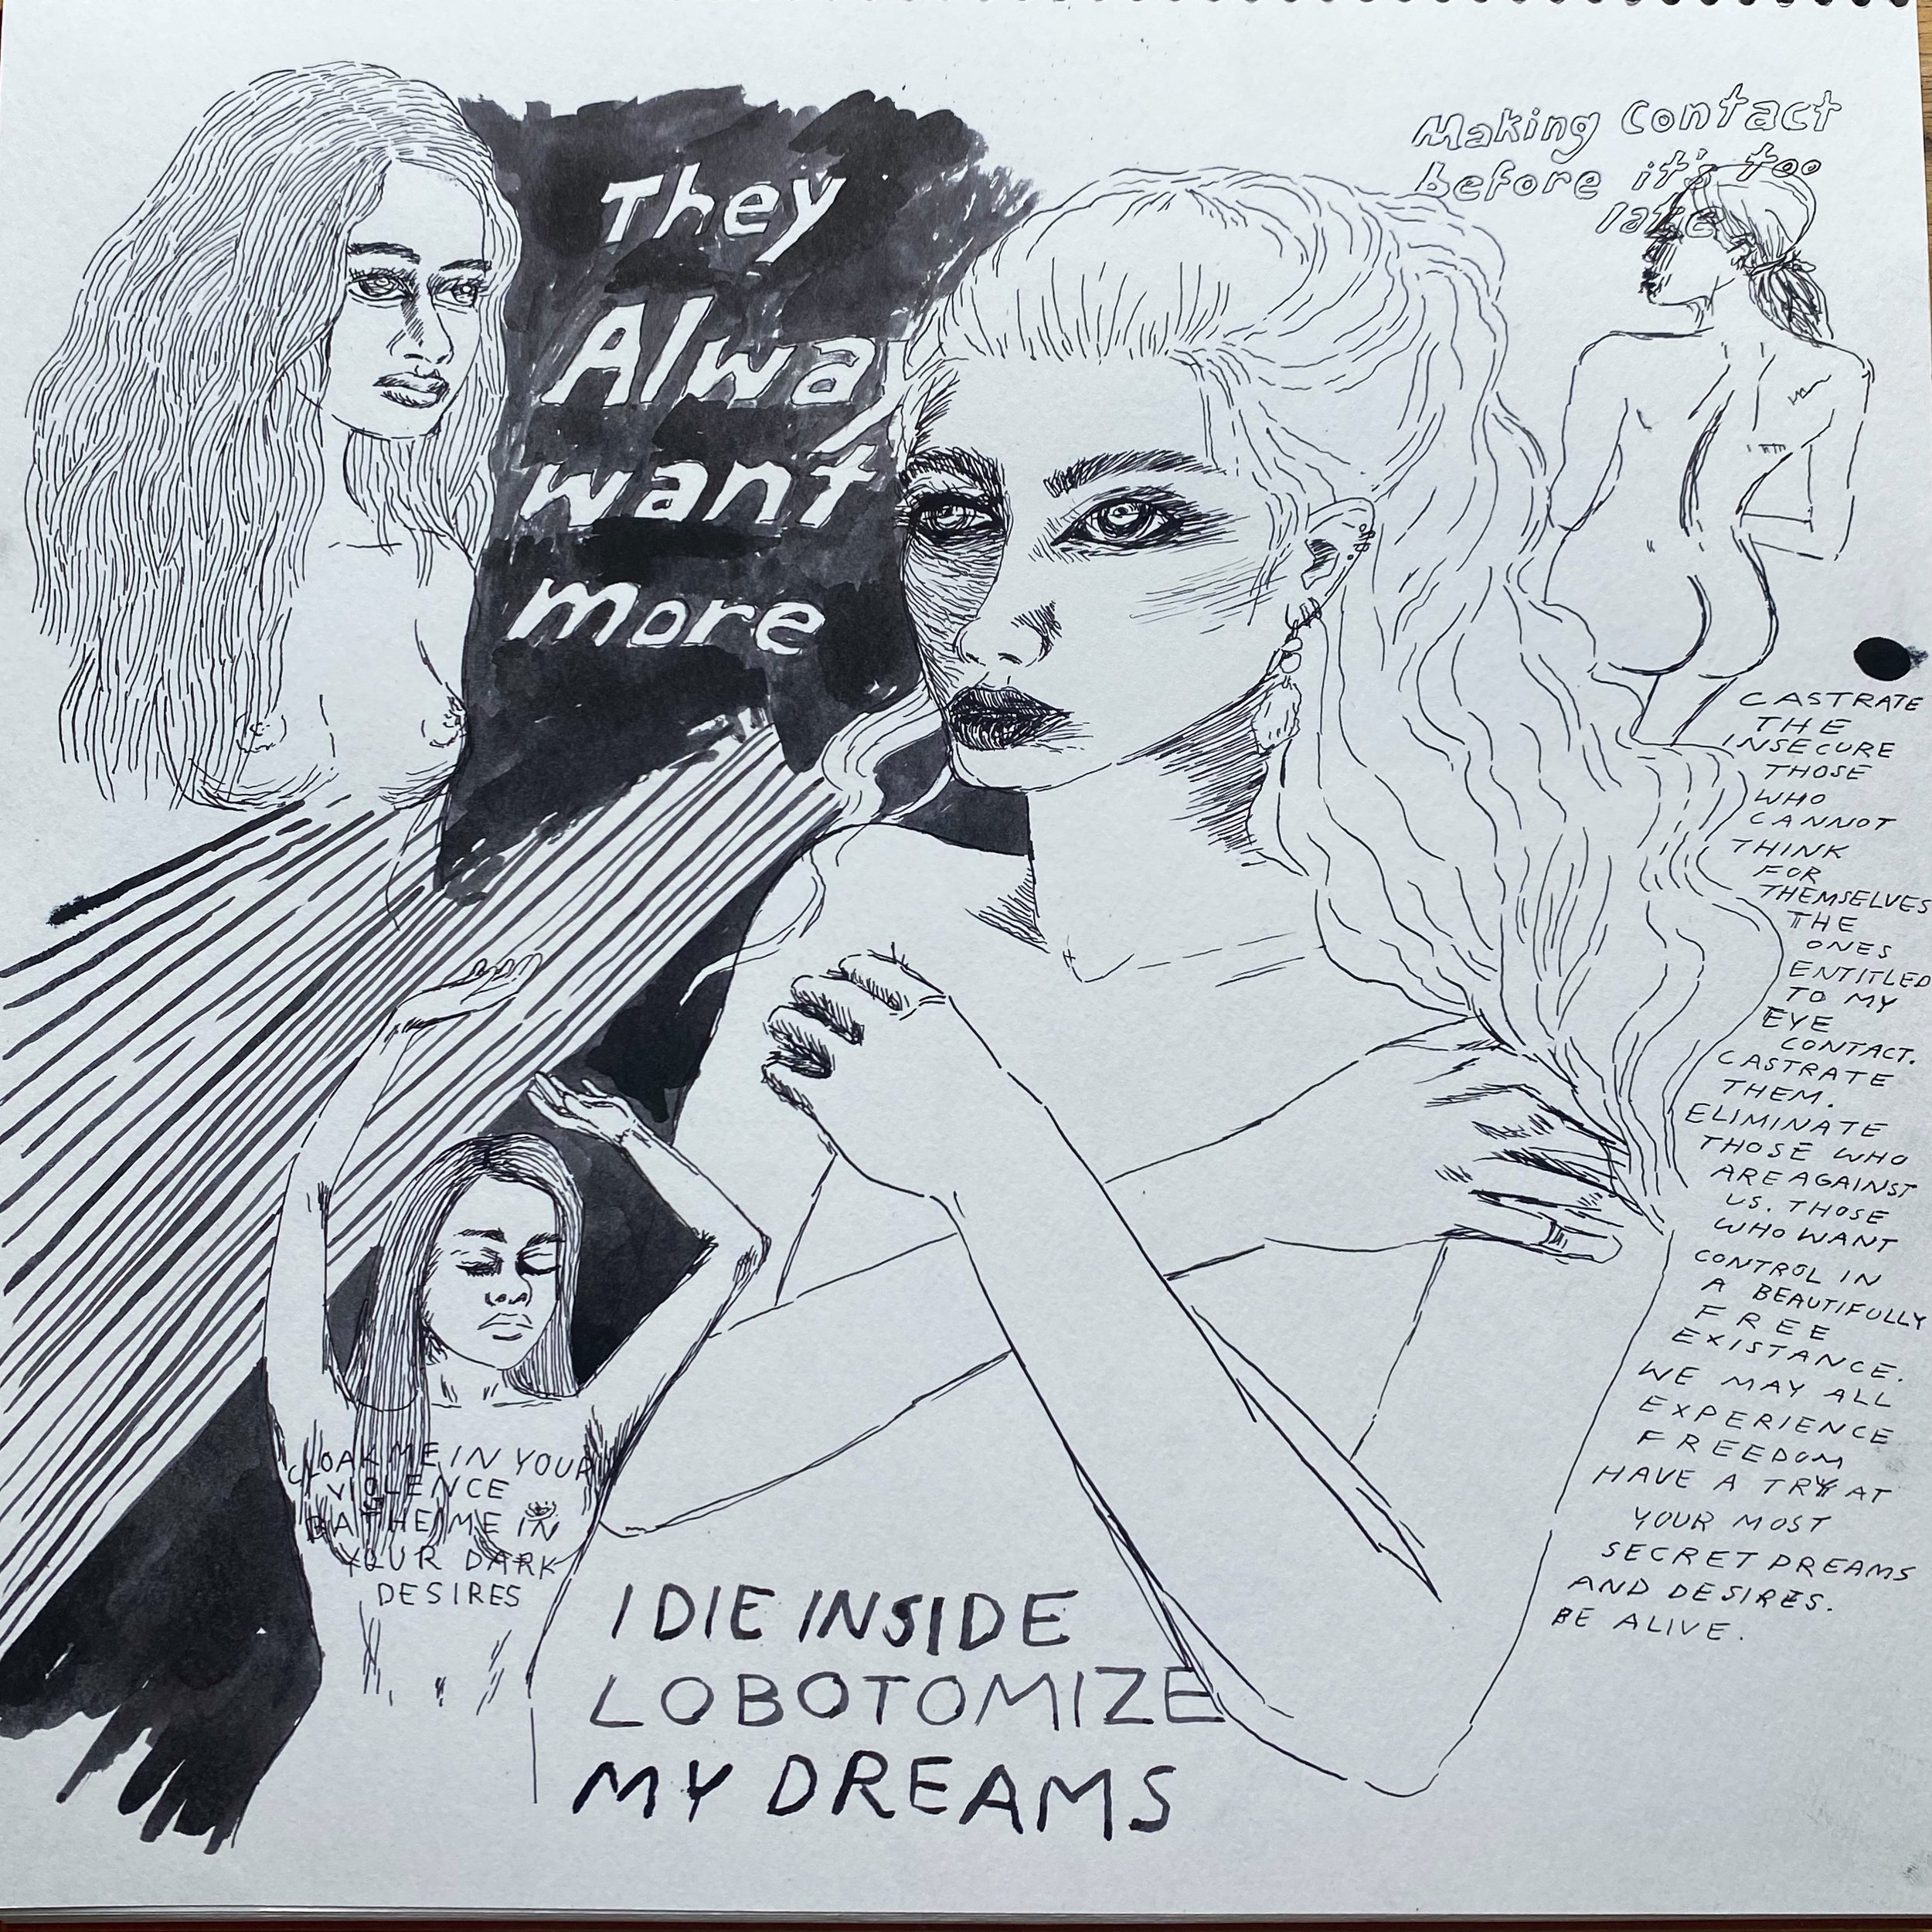 They
Alwa
want
more
Making Contact
before it's too
late
CASTRATE
THE
INSECURE
THOSE
WHO
CANNOT
THINK
FOR
THEMSELVES
THE
ONES
ENTITLED
TO MY
EYE
CONTACT.
CASTRATE
THEM.
ELIMINATE
THOSE WHO
ARE AGAINST
US. THOSE
WHO WANT
CONTROL IN
A BEAUTIFULLY
FREE
EXISTANCE.
WE MAY ALL
EXPERIENCE
FREEDOM
HAVE A TRY AT
YOUR MOST
SECRET DREAMS
AND DESIRES.
BE ALIVE.
CLOAK ME IN YOUR
VIOLENCE
BATHE ME IN
YOUR DARK
DESIRES
I DIE INSIDE
LOBOTOMIZE
MY DREAMS